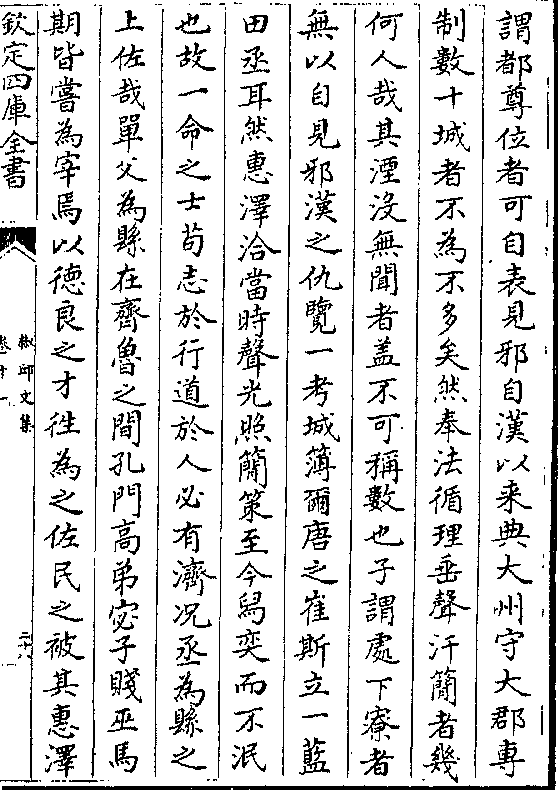 謂都尊位者可自表見邪自漢以来典大州守大郡專
制數十城者不為不多矣然奉法循理垂聲汗簡者幾
何人哉其湮沒無聞者盖不可稱數也子謂處下寮者
無以自見邪漢之仇覽一考城簿爾唐之崔斯立一藍
田丞耳然惠澤洽當時聲光照簡策至今舄奕而不泯
也故一命之士苟志於行道於人必有濟况丞為縣之
上佐哉單父為縣在齊魯之間孔門高弟宓子賤巫馬
期皆嘗為宰焉以德良之才徃為之佐民之被其惠澤
欽定四庫全書
椒邱文集
卷十一
二十八